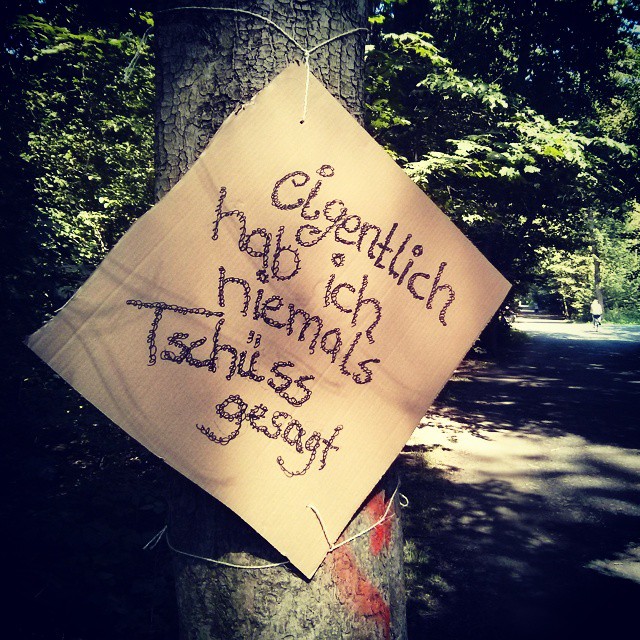 eigentlich
hab ich
niemals
Tschüss
gesagt